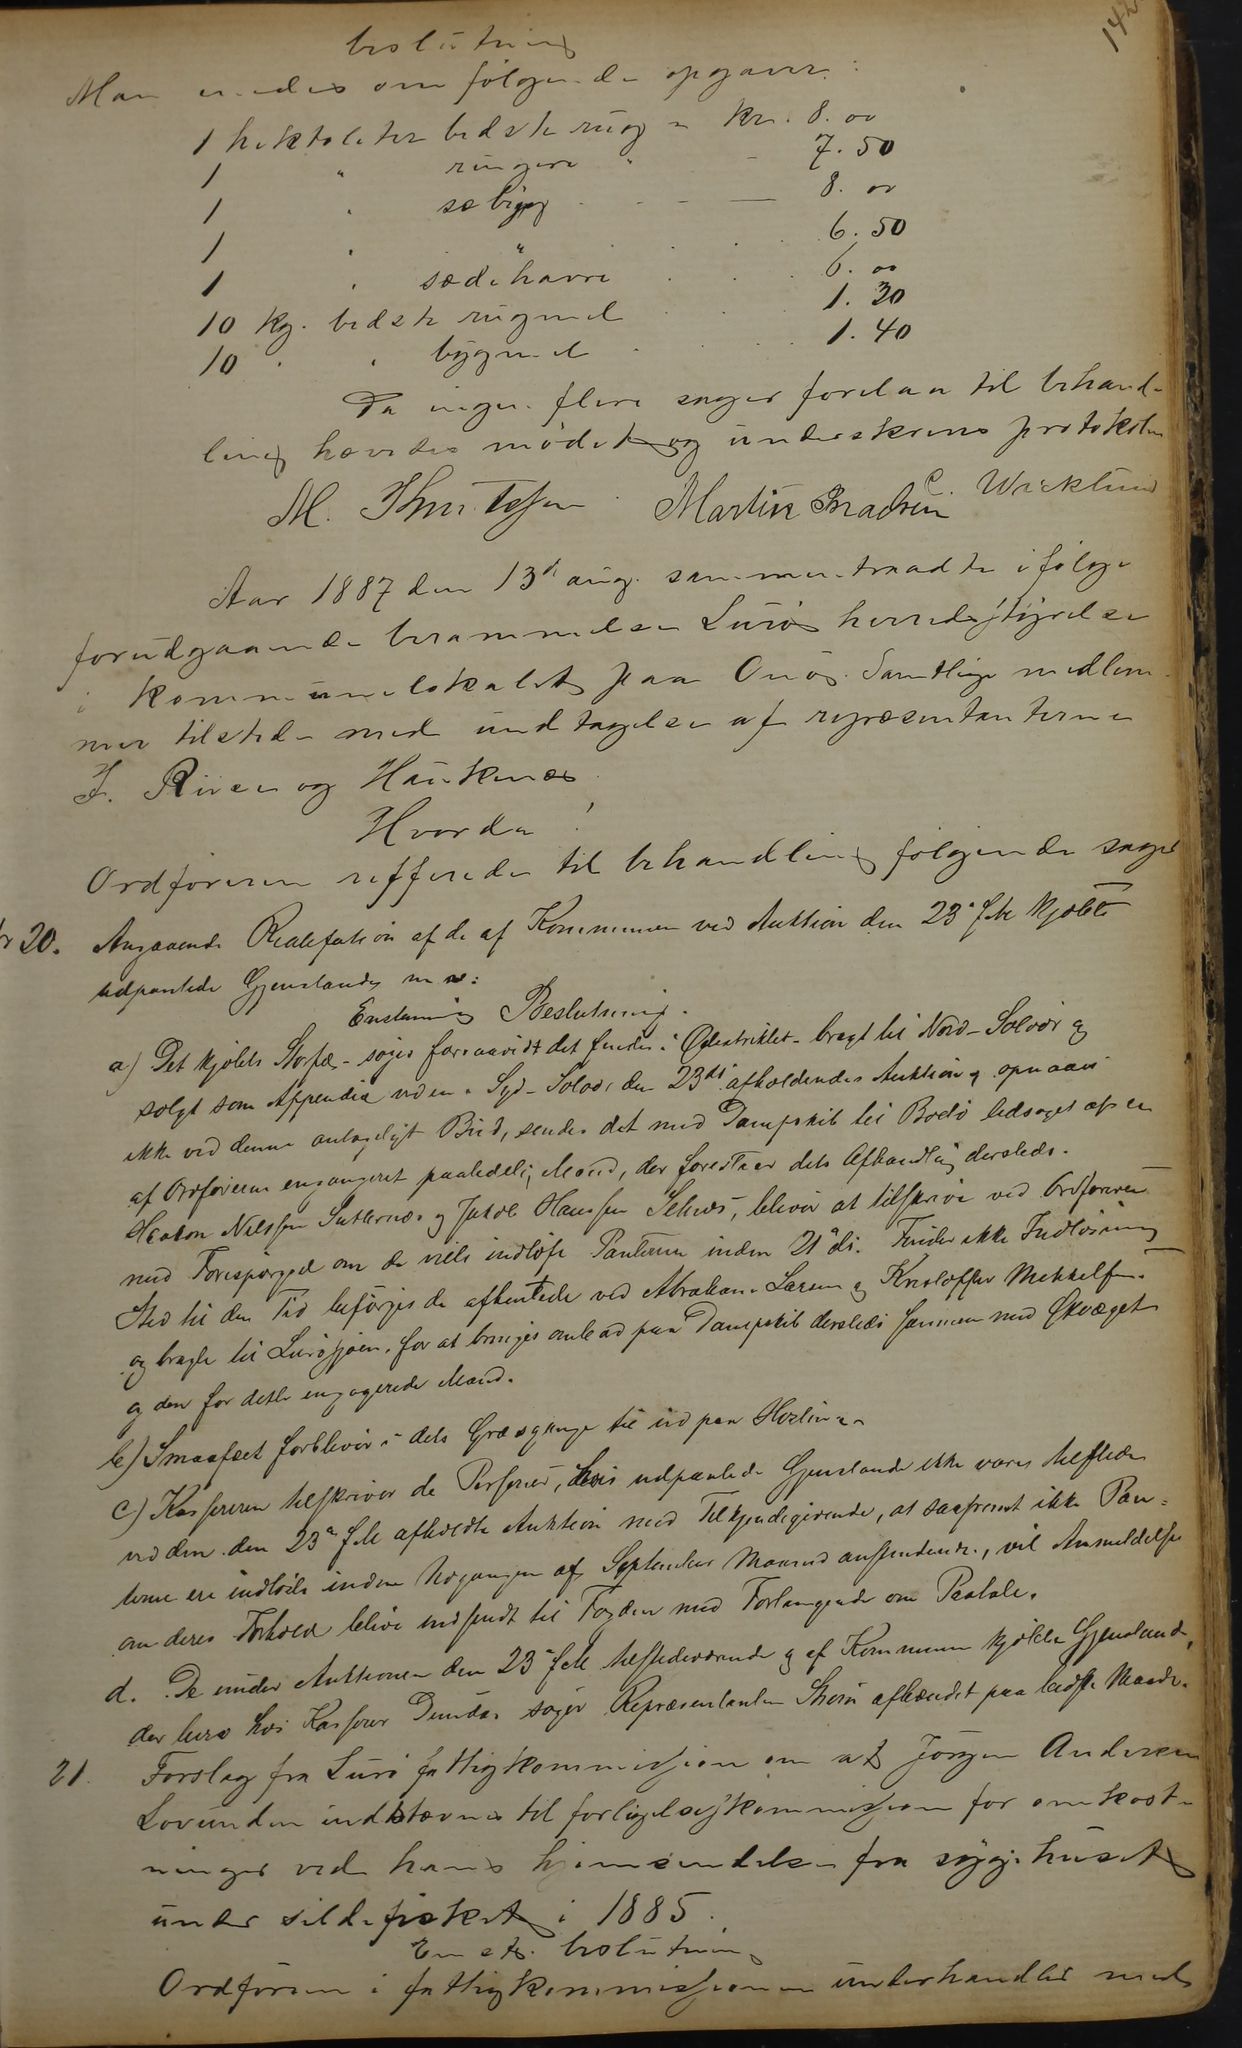 142
beslutning
Man enedes om følgende opgaver:
1 hektoliter bedste rug = kr. 8.00
1 " ringere " - 7.50
1 " sæbyg - - 8.00
1 " " 6.50
1 " sædehavre 6.00
10 kg. bedste rugmel 1.30
10 " " bygmel 1.40
Da ingen flere sager forelaa til behand-
ling hævedes mødet og underskreves protokolen
M. Martin C. Wicklund
Aar 1887 den 13de aug. sammentraadte ifølge
forudgaaende berammelse Lurø herredsstyrelse
i kommunelokalet paa Onøs. Samtlige medlem-
mer tilstede med undtagelse af repræsentanterne
J. Riise og Haukenæs.
Hvorda!
Ordføreren refferede til behandling følgende sager
Nr 20. Angaaende Realisation af de af Kommunen ved Auktion den 23de f.M. kjøbte
udpantede Gjenstande m.v.:
Enstemmig Beslutning.
a) Det kjøbte Storfæ søges forsaavidt det findes i Ødistriktet bragt til Nord-Solvær og
solgt som Appendix ved en i Syd-Solvær den 23de ds. afholdendes Auktion og opnaaes
ikke ved denne antageligt Bud, sendes det med Dampskib til Bodø ledsaget af en
af Ordføreren engangeret paalidelig Mand, der forestaar dets Afhandling dersteds.
Haakon Nilssen Sætternæs og Jakob Hanssen Selnæs, bliver at tilskrive ved Ordføreren
med Forespørgsel om de ville indløse Panterne inden 21de ds. Finder ikke Indløsning
Sted til den Tid besørges de afhentede ved Abraham Larsen og Kristoffer Mikkelsen
og bragte til Lurøsjøen, for at bringes ombord paa Dampskib dersteds sammen med Økvæget
og den for dette engagerede Mand.
b) Smaafæet forbliver i dets Græsgange til ud paa Høsten.
c) Kassereren tilskriver de Personer, hvis udpantede Gjenstande ikke vares tilstede
ved den den 23de f.M. afholdte Auktion med Tilkjendegivende, at saafremt ikke Pan-
terne ere indløste inden Udgangen af September Maaned anstundende, vil Anmeldelse
om deres Forhold blive indsendt til Fogden med Forlangende om Paatale.
d. De under Auktionen den 23de f.M. tilstedeværende og af Kommunen kjøbte Gjenstande,
der bero hos Kasserer Dundas søger Repræsentanten afhændet paa bedste Maade.
21. Forslag fra Lurø fattigkommission om at Jørgen Andersen
Lovunden indstævnes til forligelseskommissionen for omkost-
ninger ved hans hjemsendelse fra sygehuset
under sildefisket i 1885.
Enst. beslutning
Ordføreren i fattigkommissionen underhandler med